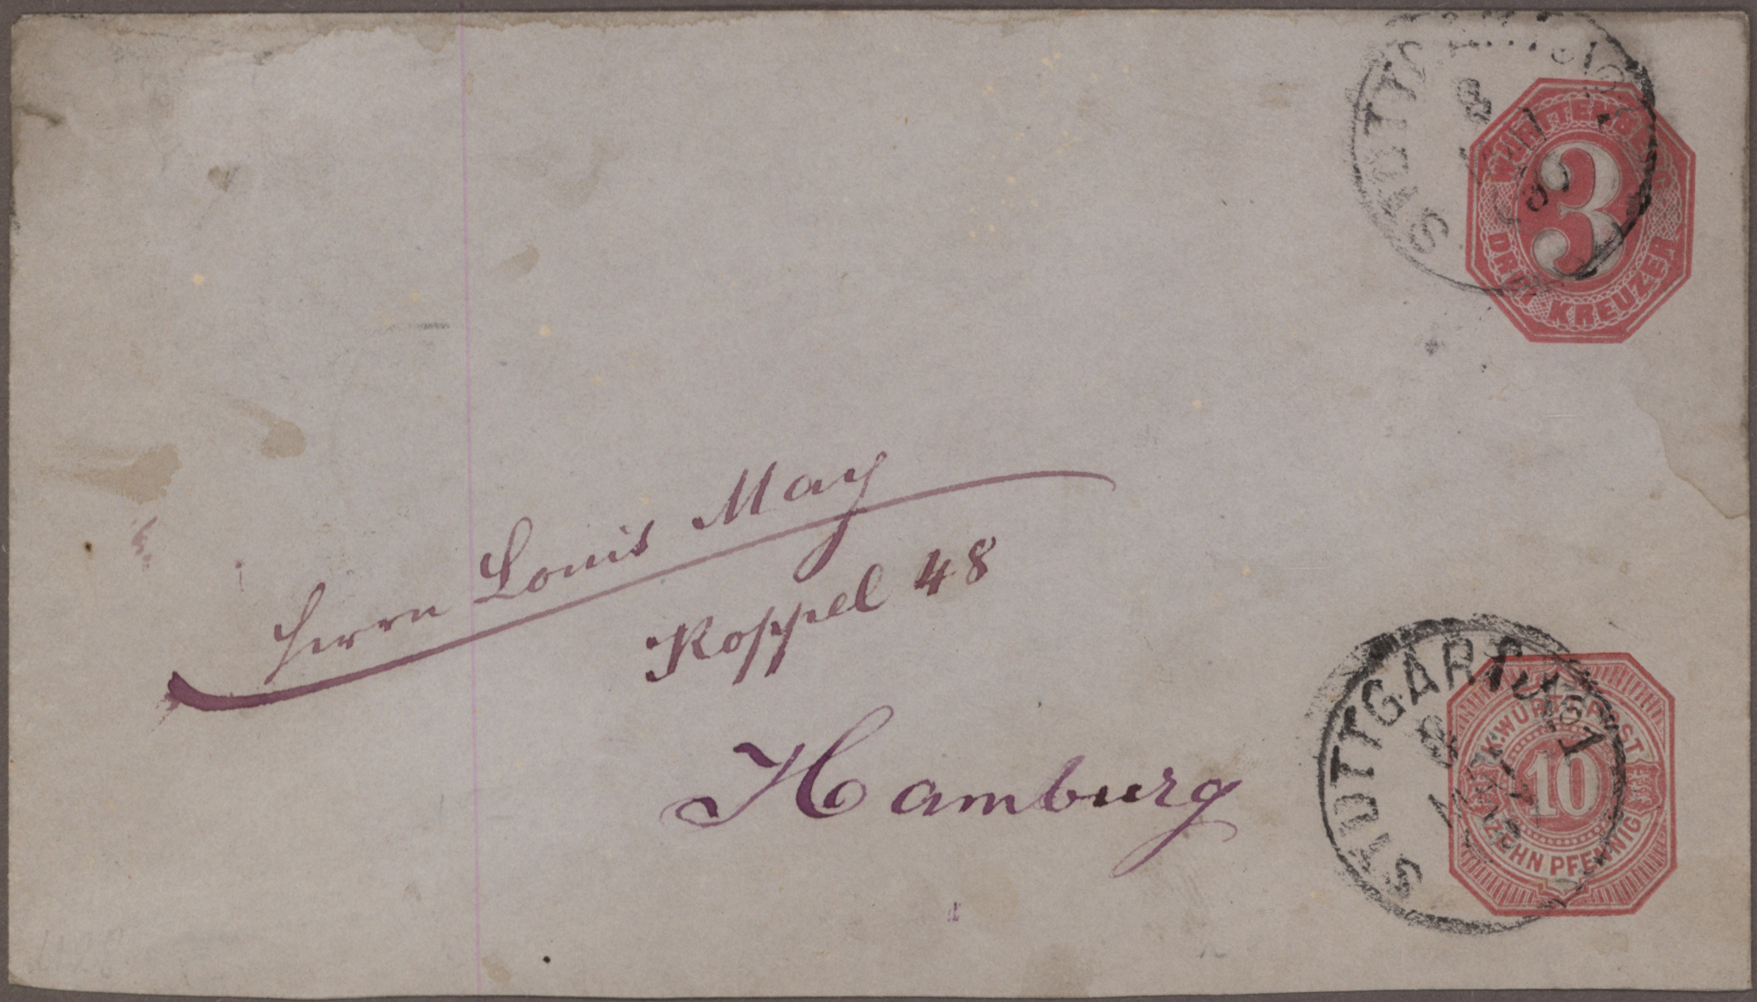 STUTTGART
8
WÜRTTEMBERG
3
DREI KREUZER
Herrn Louis May
Koppel 48
Hamburg
STUTTGART
8
1
K.WÜRTT.POST
10
ZEHN PFENNIG